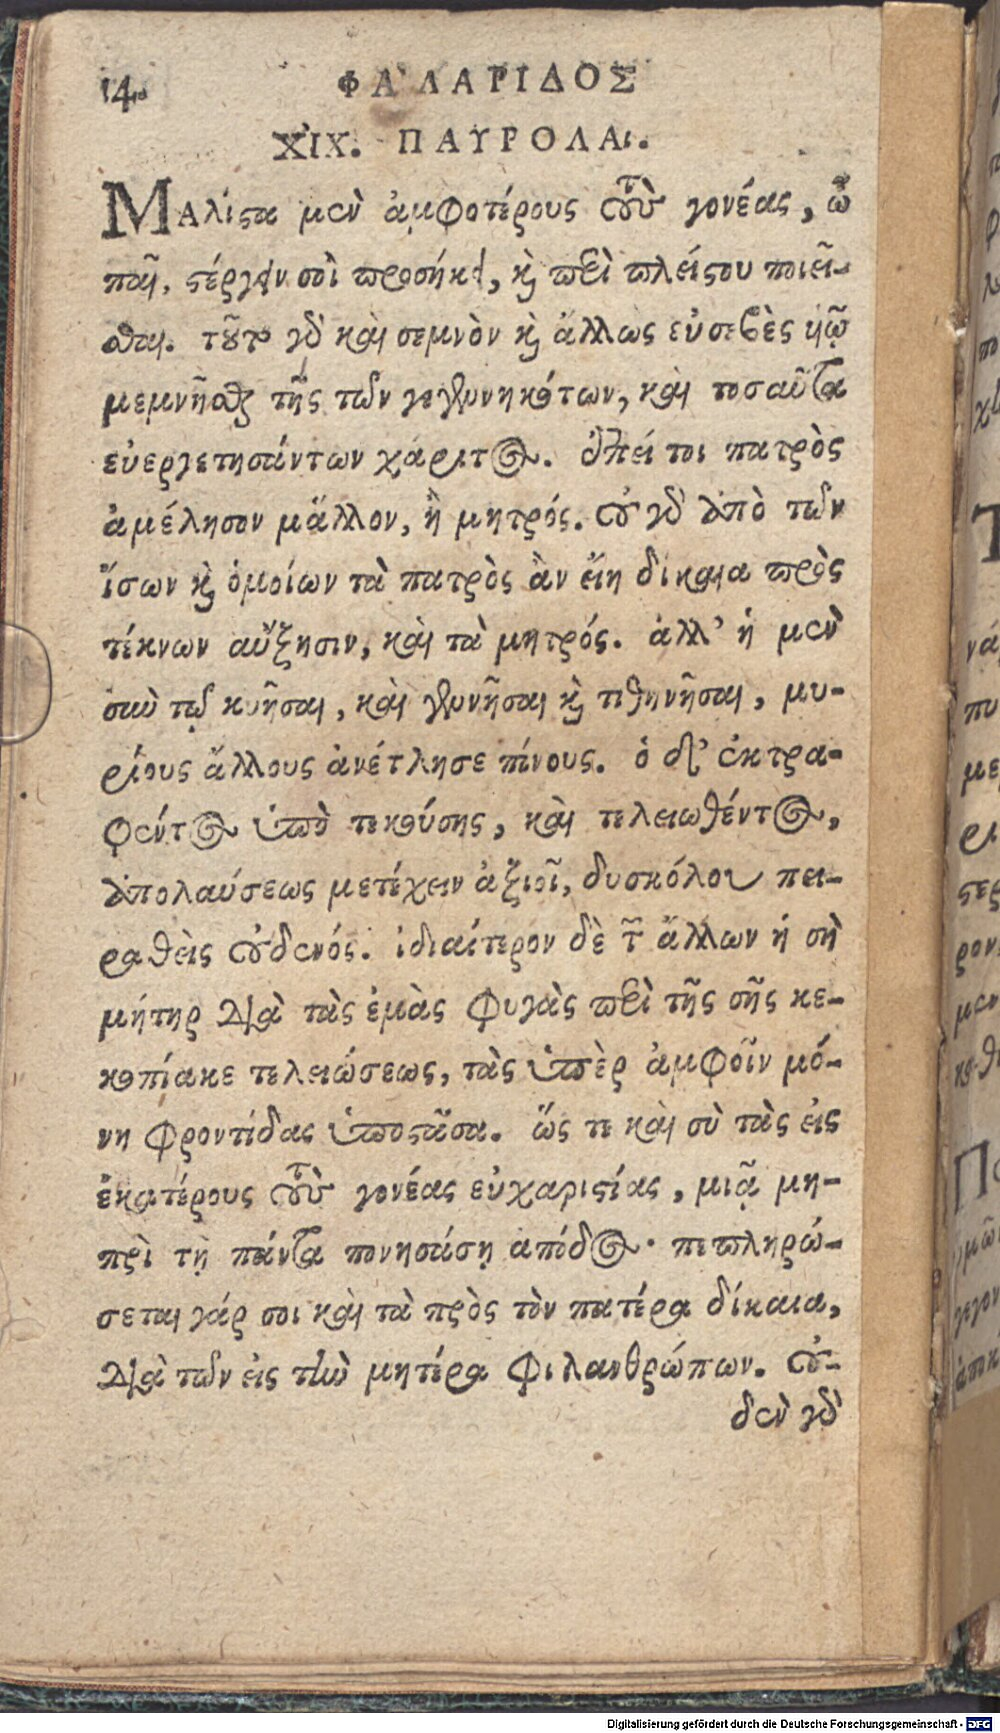 14.
ΦΑ'ΛΑΡΙΔΟΣ
XIX. ΠΑΥΡΟΛΑ.
Μάλιϛα μὲν ἀμφοτέρους τοὺς γονέας, ὦ
παῖ, ϛέργειν σοὶ προσήκει, καὶ περὶ πλείϛου ποιεῖ-
σθαι. τοῦτο γὰρ καὶ σεμνὸν καὶ ἄλλως εὐσεβὲς υἱῷ
μεμνῆσθαι τῆς τῶν γεγεννηκότων, καὶ τοσαῦτα
εὐεργετησάντων χάριτος. ἐπεί τοι πατρὸς
ἀμέλησον μᾶλλον, ἢ μητρός. οὐ γὰρ ἀπὸ τῶν
ἴσων καὶ ὁμοίων τὰ πατρὸς ἂν εἴη δίκαια πρὸς
τέκνων αὔξησιν, καὶ τὰ μητρός. ἀλλ' ἡ μὲν
σὺν τῷ κυῆσαι, καὶ γεννῆσαι καὶ τιθηνῆσαι, μυ-
ρίους ἄλλους ἀνέτλησε πόνους. ὁ δ' ἐκτρα-
φέντος ὑπὸ τεκούσης, καὶ τελειωθέντος,
ἀπολαύσεως μετέχειν ἀξιοῖ, δυσκόλου πει-
ραθεὶς οὐδενός. ἰδιαίτερον δὲ τῶν ἄλλων ἡ σὴ
μήτηρ διὰ τὰς ἐμὰς φυγὰς περὶ τῆς σῆς κε-
κοπίακε τελειώσεως, τὰς ὑπὲρ ἀμφοῖν μό-
νη φροντίδας ὑποϛᾶσα. ὥς τε καὶ σὺ τὰς εἰς
ἑκατέρους τοὺς γονέας εὐχαριϛίας, μιᾷ μη-
τρὶ τῇ πάντα πονησάσῃ ἀπόδος· πεπληρώ-
σεται γάρ σοι καὶ τὰ πρὸς τὸν πατέρα δίκαια,
διὰ τῶν εἰς τὴν μητέρα φιλανθρώπων. οὐ-
δὲν γὰρ
Digitalisierung gefördert durch die Deutsche Forschungsgemeinschaft - DFG